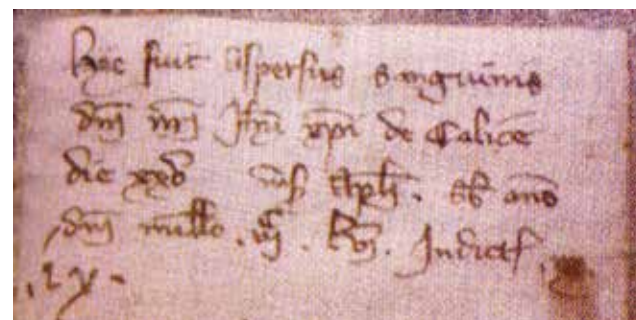 hic fuit aspersus sanguinis
dni nri Jhu xpi de Calice
die xxv ms Apl. sb ano
dni millo . Lvi. Indict
. ix.